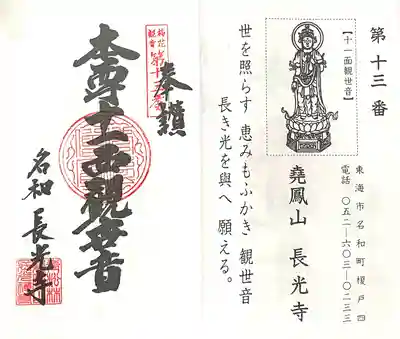 第十三番
【十一面観世音】
東海市名和町榎戸四
電話 〇五二―六〇三―〇二三三
堯鳳山 長光寺
世を照らす 恵みもふかき 観世音
長き光を與へ 願える。
奉讃
第十三番
本尊十一面観世音
名和 長光寺